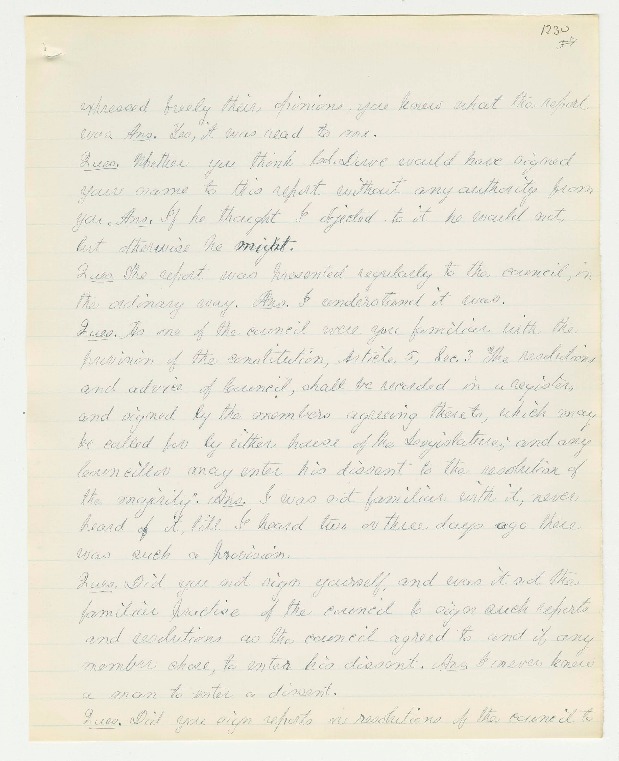 1230
57
expressed freely their opinions you knew what the report
was Ans. Yes, it was read to me.
Ques. Whether you think Col. would have signed
your name to this report without any authority from
you. Ans. If he thought I objected to it he would not,
but otherwise he might.
Ques The report was presented regularly to the council, in
the ordinary way. Ans. I understand it was.
Ques. As one of the council were you familiar with the
provision of the constitution, Article 5, Sec. 3 "The resolutions
and advice of Council, shall be recorded in a register,
and signed by the members agreeing thereto, which may
be called for by either house of the Legislature; and any
Councillor may enter his dissent to the resolution of
the majority". Ans. I was not familiar with it, never
heard of it, till I heard two or three days ago there
was such a provision.
Ques. Did you not sign yourself, and was it not the
familiar practise of the council to sign such reports
and resolutions as the council agreed to and if any
member chose, to enter his dissent. Ans I never knew
a man to enter a dissent.
Ques. Did you sign reports or resolutions of the council to